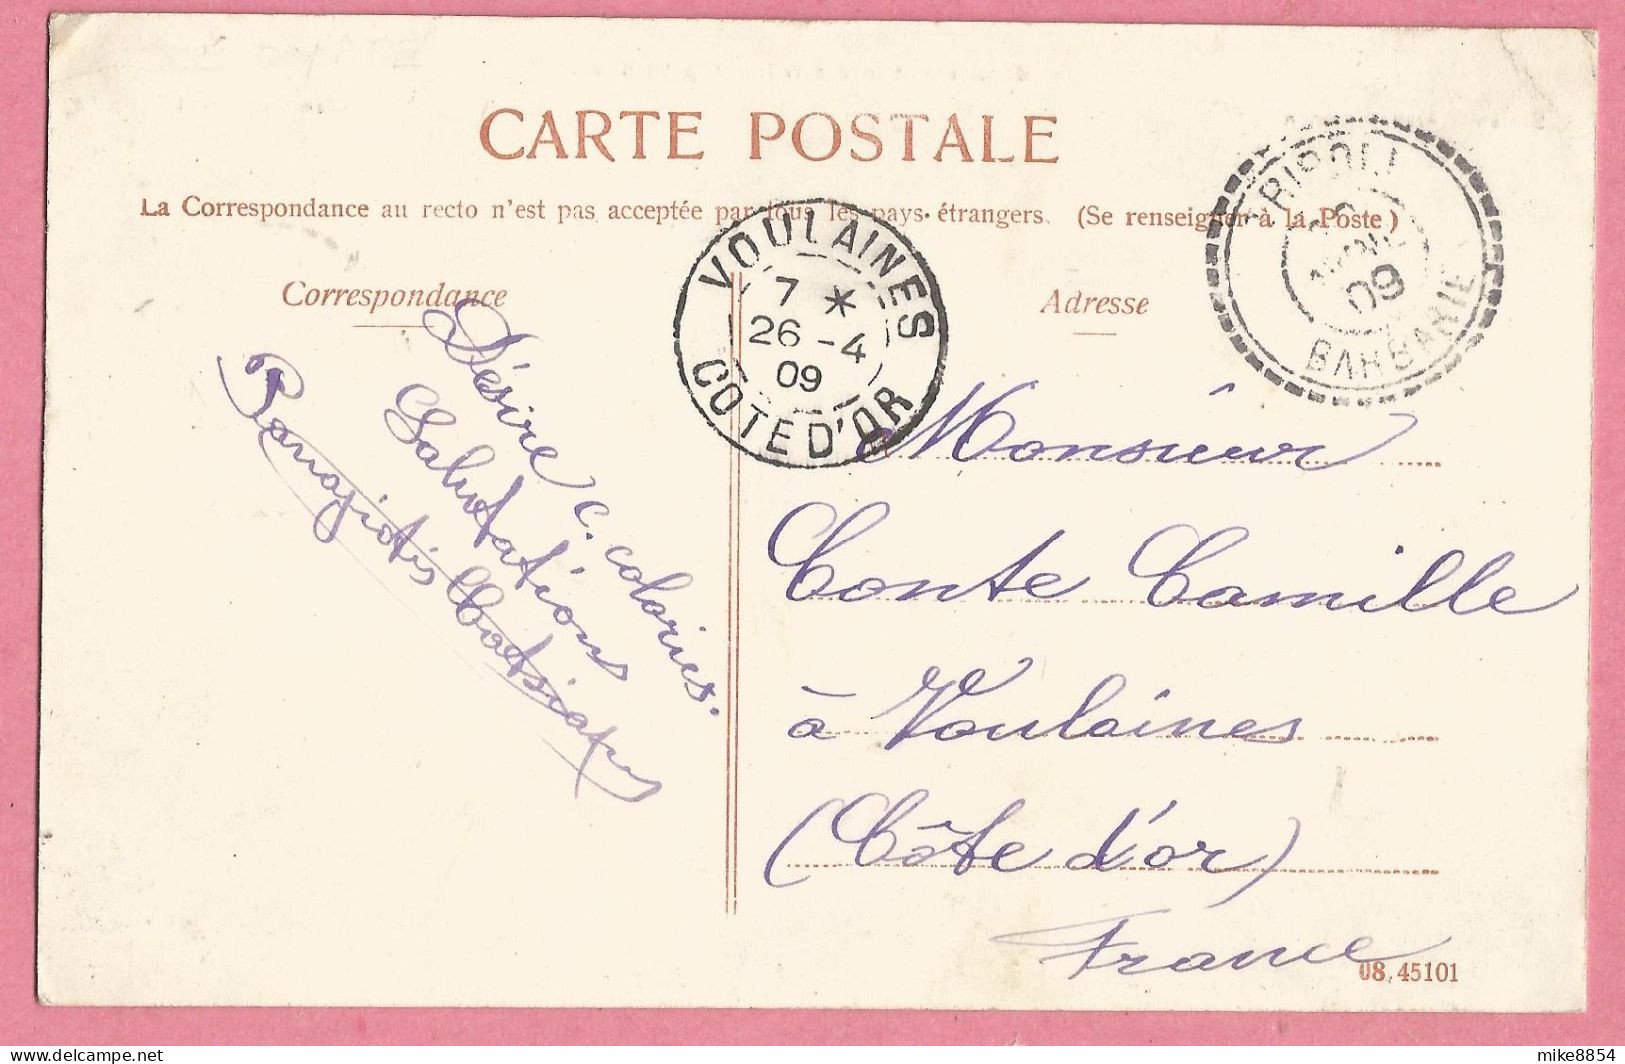 CARTE POSTALE
La Correspondance au recto n'est pas acceptée par tous les pays étrangers. (Se renseigner à la Poste)
TRIPOLI
AVRIL
09
BARBARIE
VOULAINES
7 *
26 - 4
09
COTE D'OR
Correspondance
Adresse
Désire c. coloriés.
Salutations
Panagiotis
Monsieur
Conte Camille
à Voulaines
(Côte d'or)
France
08, 45101
delcampe.net
mike8854